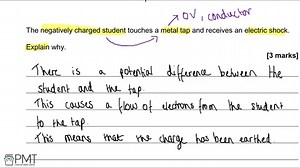 OV, conductor
The negatively charged student touches a metal tap and receives an electric shock.
Explain why.
[3 marks]
There is a potential difference between the
student and the tap.
This causes a flow of electrons from the student
to the tap.
This means that the charge has been earthed
PMT